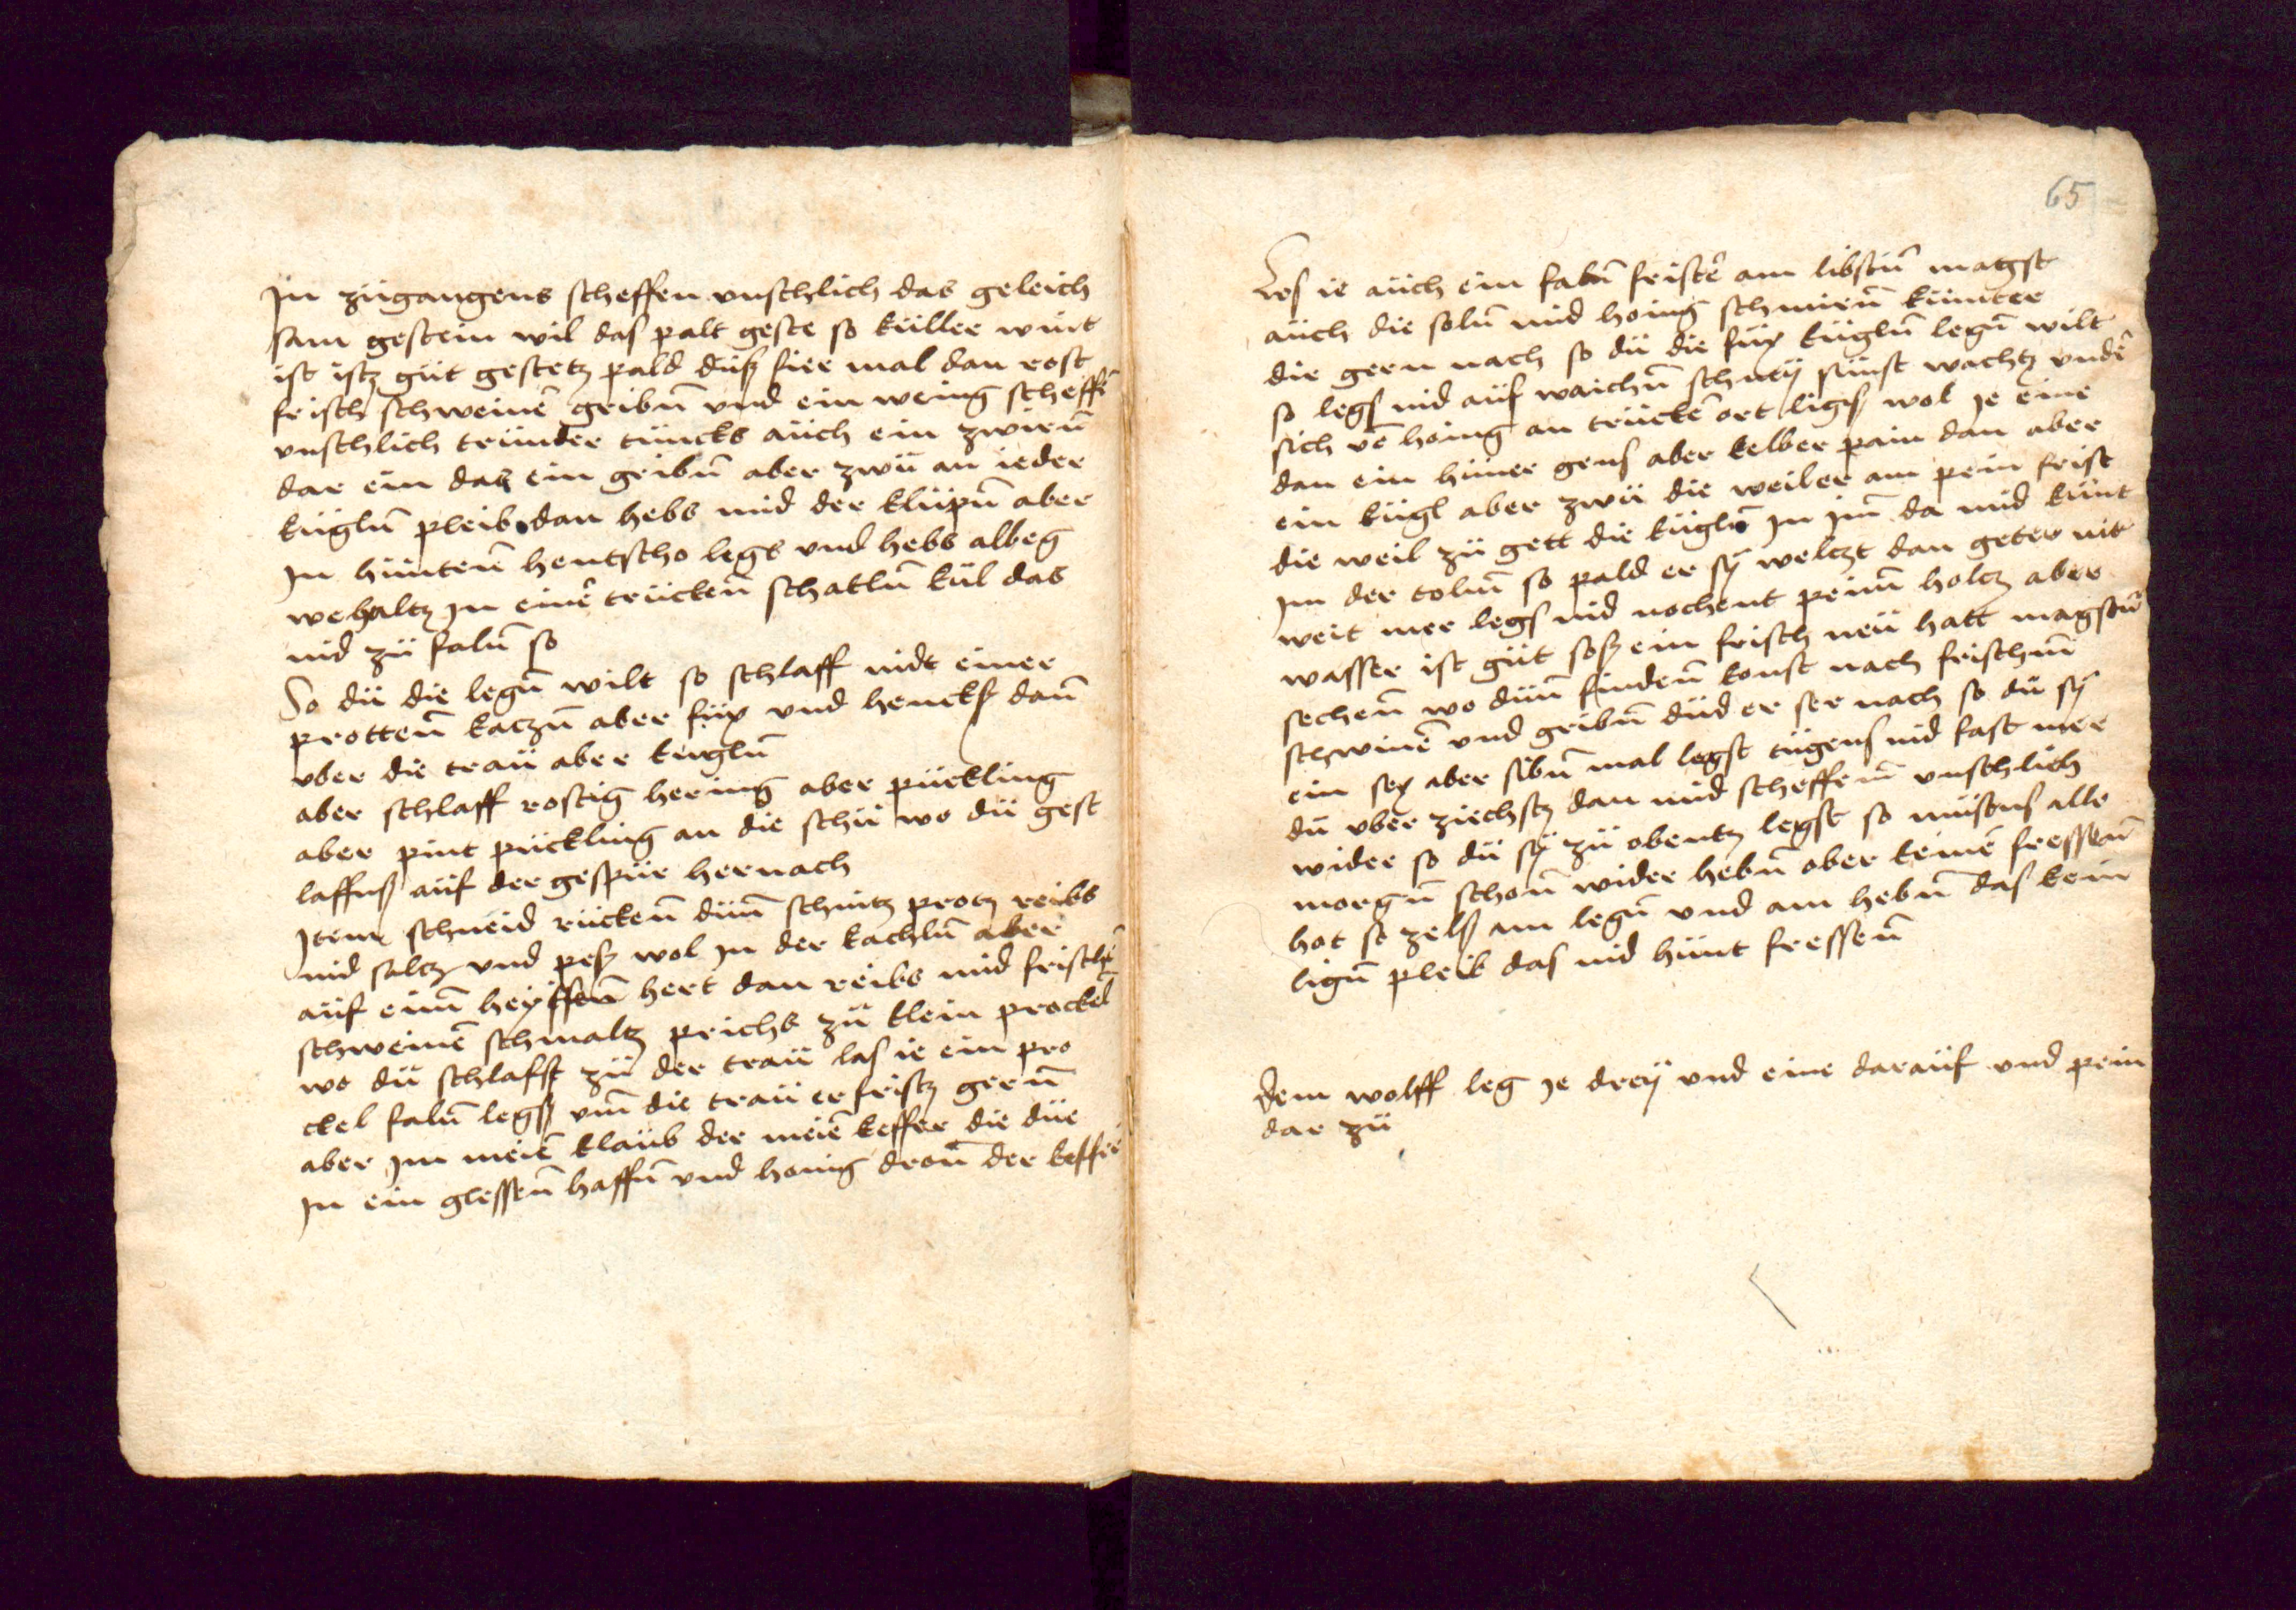 In zugangens scheffen unschlich das geleich
sam gestein wil das palt geste so küller wint
ist istz güt gestetz pald düsz fier mal dan rost
frisch schweinē gribn̄ vnd ein wenig scheffē
unschlich trunder tuncks aüch ein zwirn̄
dar ein das ein gribn̄ aber zwü an ieder
kügln̄ pleib dan hebs mid der klüpn̄ aber
In hüntenn̄ hentscho legs vnd hebs albeg
we haltz in einē trücken̄ schatln̄ kül das
nid zü faln̄ so
So dü die legn̄ wilt so schlaff nidt einer
protten̄ katzn̄ aber füx vnd hencks dan̄
vber die traü aber kügln̄
aber schlaff rostig hering aber pückling
aber pint pückling an die schü wo dü gest
laffusz aüf der gespür hernach
Item schneid rücken̄ dün̄ schnitz protz reibs
nid saltz vnd pesz wol in der kachln̄ aber
aüf einn̄ heyssen̄ hert dan reibs mid frischē
schweinē schmaltz prichs zü klein prockel
wo dü schlafst zü der traü las ie ein pro
ckel faln̄ legsz vm̄ die traü er fristz gern̄
aber im meiē klaüb der meiē keffer die düe
In ein glessen̄ haffn̄ vnd honig dron̄ der keffer
65
Les ie aüch ein fabn̄ fristē am libstn̄ magst
aüch die soln̄ mid honig schmirn̄ kümter
die gern nach so dü die füx kügln̄ legn̄ wilt
so legs nid aüf waichn̄ schney sünst wachtz vndē
sich vē honig an trückē ort ligs wol ie eine
dan ein hüner gens aber kelber pain dan aber
ein kügl aber zwü die weiler am pein frist
die weil zü gett die kügln̄ In im̄ da mid künt
Im der toln̄ so pald er sy welczt dan geter nit
weit mer legs nid nochent peinn̄ holtz aber
wasser ist güt sosz ein frisch neü hatt magstü
sechen̄ wo dün̄ finden̄ konst nach frischn̄
schwinē vnd gribn̄ düd er ser nach so dü sy
ein sex aber sibn̄ mal legst tügens nid fast mer
dü vber ziechstz dan mid scheffen̄ unschlich
wider so dü sy zü obentz legst so müstus alle
morgn̄ schon̄ wider hebn̄ ober keinē fressen̄
hat so zelsz am legn̄ vnd am hebn̄ das kein
lign̄ pleib das nid hünt fressen̄
dem wolff leg ie drey vnd eine daraüf vnd pein
dar zü